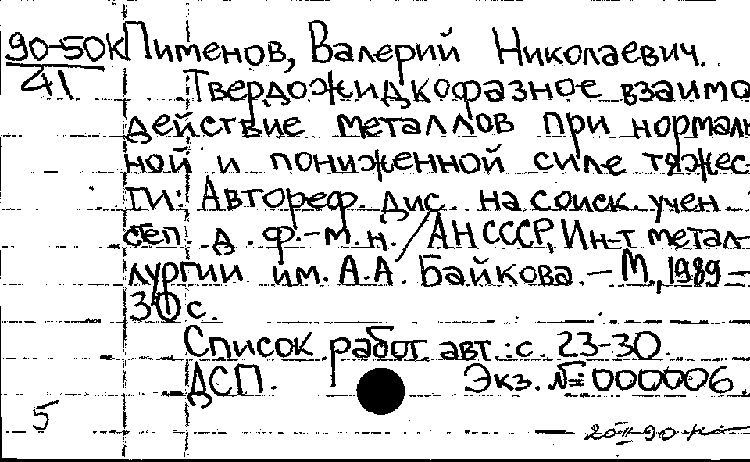 90-50К Пименов, Валерий Николаевич.
41 Твердожидкофазное взаимо
действие металлов при нормаль
ной и пониженной силе тяжес-
ти: Автореф. дис. на соиск. учен.
степ. д. ф.-м. н. / АН СССР, Ин-т метал-
лургии им. А.А. Байкова. – М., 1989 –
30 с.
Список работ авт.: с. 23-30.
ДСП. Экз. № 000006.
5